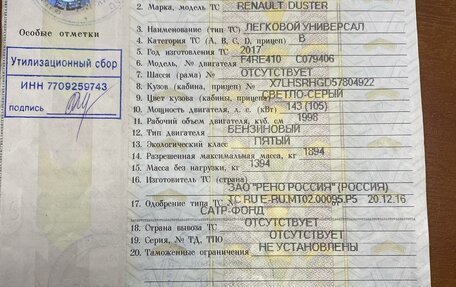 2. Марка, модель ТС RENAULT DUSTER
Особые отметки
3. Наименование (тип ТС) ЛЕГКОВОЙ УНИВЕРСАЛ
4. Категория ТС (A, B, C, D, прицеп) B
5. Год изготовления ТС 2017
6. Модель, № двигателя F4RE410 C079406
7. Шасси (рама) № ОТСУТСТВУЕТ
8. Кузов (кабина, прицеп) № X7LHSRHGD57804922
9. Цвет кузова (кабины, прицепа) СВЕТЛО-СЕРЫЙ
10. Мощность двигателя, л. с. (кВт) 143 (105)
11. Рабочий объем двигателя, куб. см 1998
12. Тип двигателя БЕНЗИНОВЫЙ
13. Экологический класс ПЯТЫЙ
14. Разрешенная максимальная масса, кг 1894
15. Масса без нагрузки, кг 1394
16. Изготовитель ТС (страна)
ЗАО "РЕНО РОССИЯ" (РОССИЯ)
17. Одобрение типа ТС № ТС RU E-RU.MT02.00095.P5 20.12.16
САТР-ФОНД
18. Страна вывоза ТС ОТСУТСТВУЕТ
19. Серия, № ТД, ТПО ОТСУТСТВУЕТ
20. Таможенные ограничения НЕ УСТАНОВЛЕНЫ
Утилизационный сбор
ИНН 7709259743
подпись